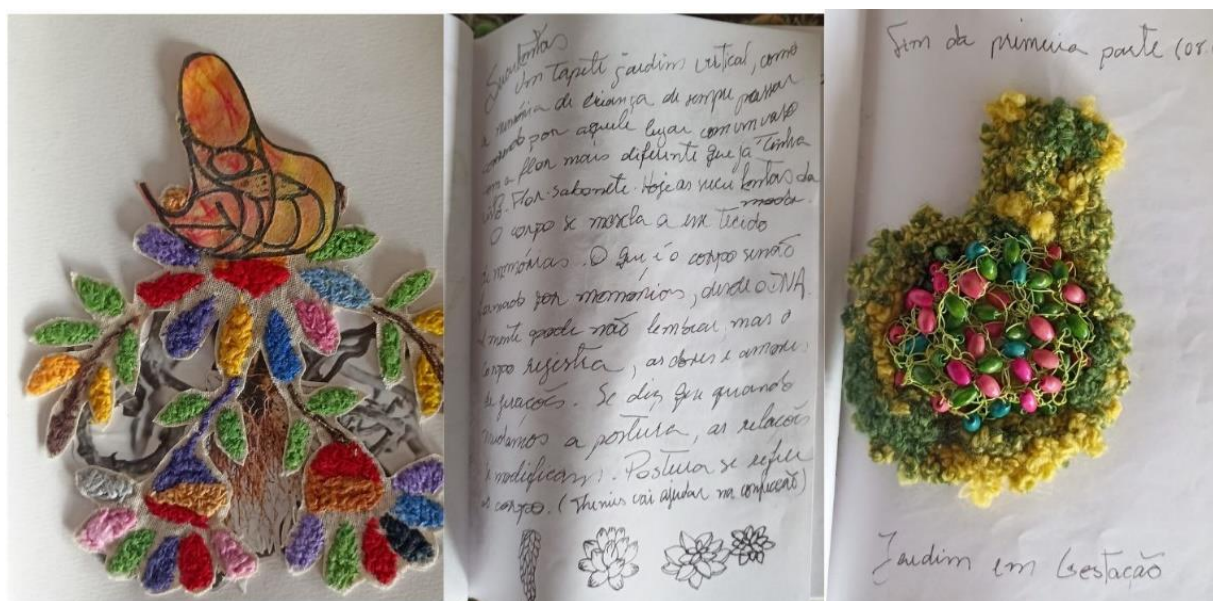 Suculentas
Um Tapete jardim vertical, como
memória de criança de sempre passar
correndo por aquele lugar com um vaso
com a flor mais diferente que já Tinha
visto. Flor-sabonete. Hoje as suculentas da
moda.
O corpo se mescla a um tecido
de memórias. O que é o corpo senão
formado por memórias, desde o DNA.
A mente pode não lembrar mas o
corpo registra, as dores e amores
de gerações. Se diz que quando
mudamos a postura, as relações
se modificam. Postura se refere
ao corpo. (Themis vai ajudar na confecção)
Fim da primeira parte
Jardim em Gestação